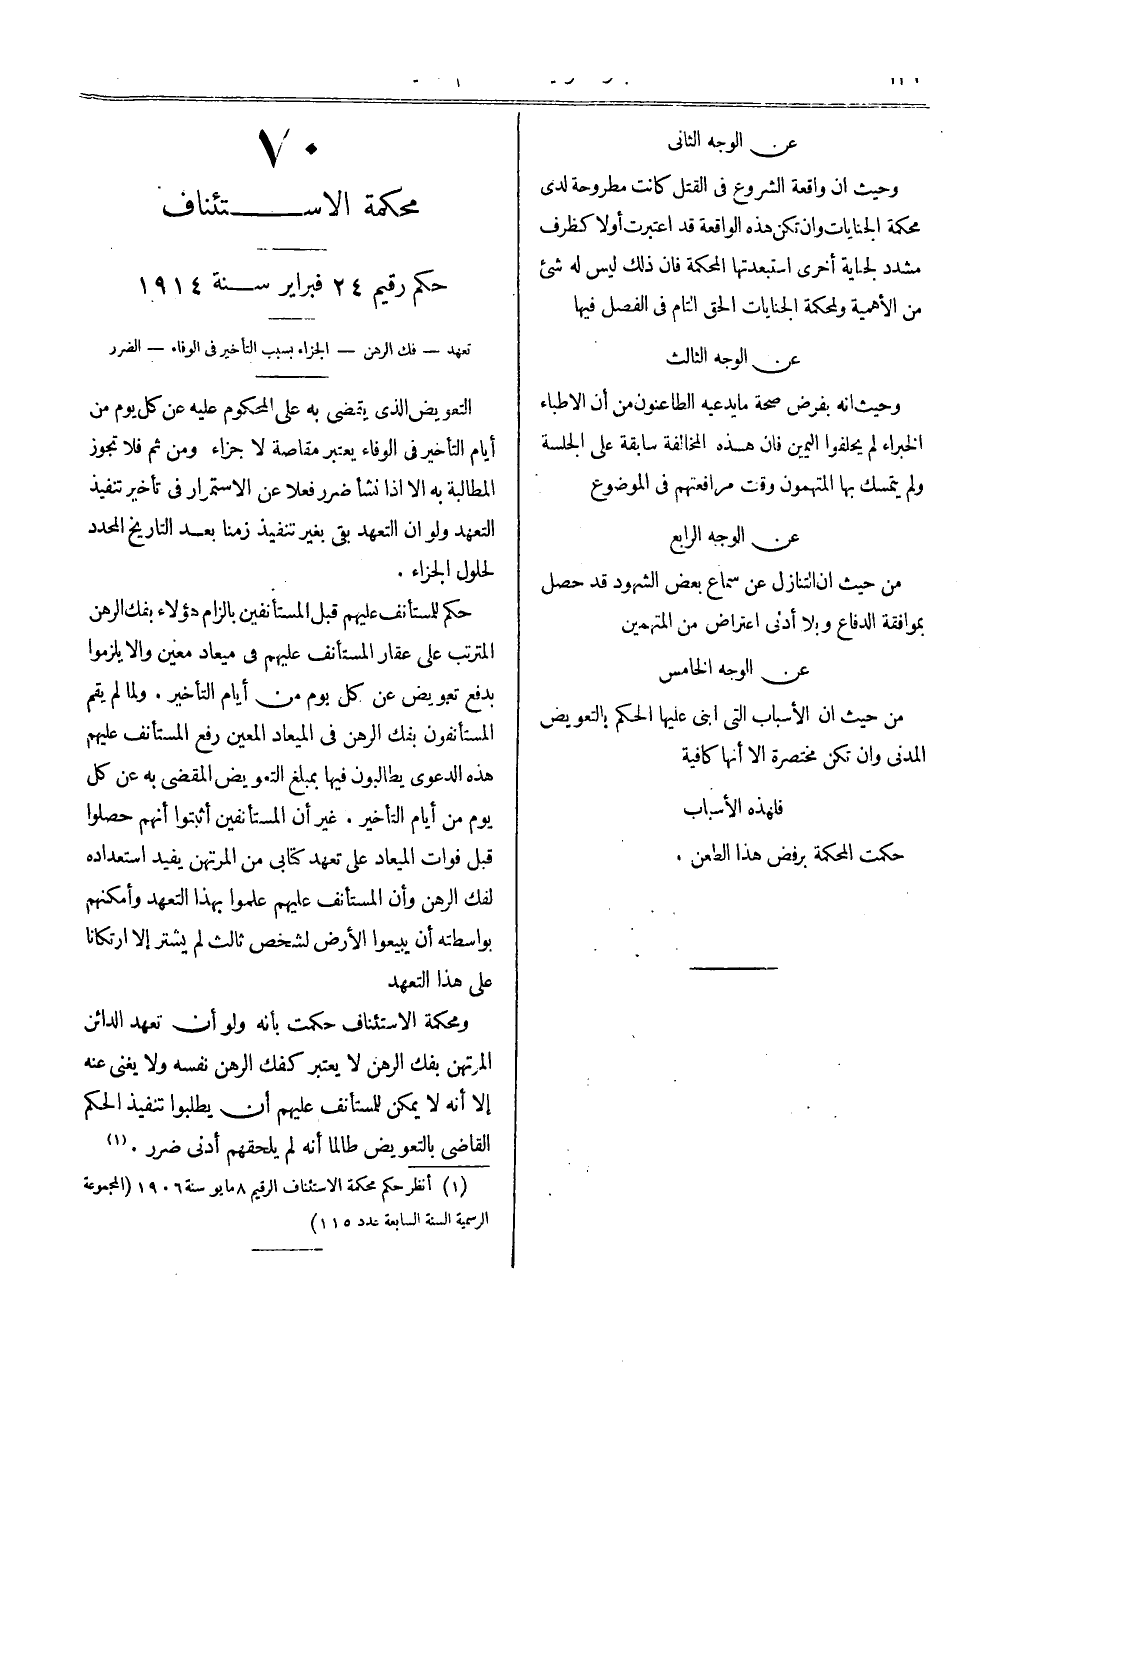 عن الوجه الثانى
وحيث ان واقعة الشروع فى القتل كانت مطروحة لدى
محكمة الجنايات وان تكن هذه الواقعة قد اعتبرت أولا كظرف
مشدد لجناية أخرى استبعدتها المحكمة فان ذلك ليس له شئ
من الأهمية ولمحكمة الجنايات الحق التام فى الفصل فيها
عن الوجه الثالث
وحيث انه بفرض صحة مايدعيه الطاعنون من أن الاطباء
الخبراء لم يحلفوا اليمين فان هذه المخالفة سابقة على الجلسة
ولم يتمسك بها المتهمون وقت مرافعتهم فى الموضوع
عن الوجه الرابع
من حيث ان التنازل عن سماع بعض الشهود قد حصل
بموافقة الدفاع وبلا أدنى اعتراض من المتهمين
عن الوجه الخامس
من حيث ان الأسباب التى ابنى عليها الحكم بالتعويض
المدنى وان تكن مختصرة الا أنها كافية
فلهذه الأسباب
حكمت المحكمة برفض هذا الطعن .
٧٠
محكمة الاستئناف
حكم رقيم ٢٤ فبراير سنة ١٩١٤
تعهد — فك الرهن — الجزاء بسبب التأخير فى الوفاء — الضرر
التعويض الذى يقضى به على المحكوم عليه عن كل يوم من
أيام التأخير فى الوفاء يعتبر مقاصة لا جزاء ومن ثم فلا تجوز
المطالبة به الا اذا نشأ ضرر فعلا عن الاستمرار فى تأخير تنفيذ
التعهد ولو ان التعهد بقى بغير تنفيذ زمنا بعد التاريخ المحدد
لحلول الجزاء .
حكم للمستأنف عليهم قبل المستأنفين بالزام هؤلاء بفك الرهن
المترتب على عقار المستأنف عليهم فى ميعاد معين والا يلزموا
بدفع تعويض عن كل يوم من أيام التأخير . ولما لم يقم
المستأنفون بفك الرهن فى الميعاد المعين رفع المستأنف عليهم
هذه الدعوى يطالبون فيها بمبلغ التعويض المقضى به عن كل
يوم من أيام التأخير . غير أن المستأنفين أثبتوا أنهم حصلوا
قبل فوات الميعاد على تعهد كتابى من المرتهن يفيد استعداده
لفك الرهن وأن المستأنف عليهم علموا بهذا التعهد وأمكنهم
بواسطته أن يبيعوا الأرض لشخص ثالث لم يشتر إلا ارتكانا
على هذا التعهد
ومحكمة الاستئناف حكمت بأنه ولو أن تعهد الدائن
المرتهن بفك الرهن لا يعتبر كفك الرهن نفسه ولا يغنى عنه
إلا أنه لا يمكن للمستأنف عليهم أن يطلبوا تنفيذ الحكم
القاضى بالتعويض طالما أنه لم يلحقهم أدنى ضرر . (١)
(١) أنظر حكم محكمة الاستئناف الرقيم ٨ مايو سنة ١٩٠٦ (المجموعة
الرسمية السنة السابعة عدد ١١٥)